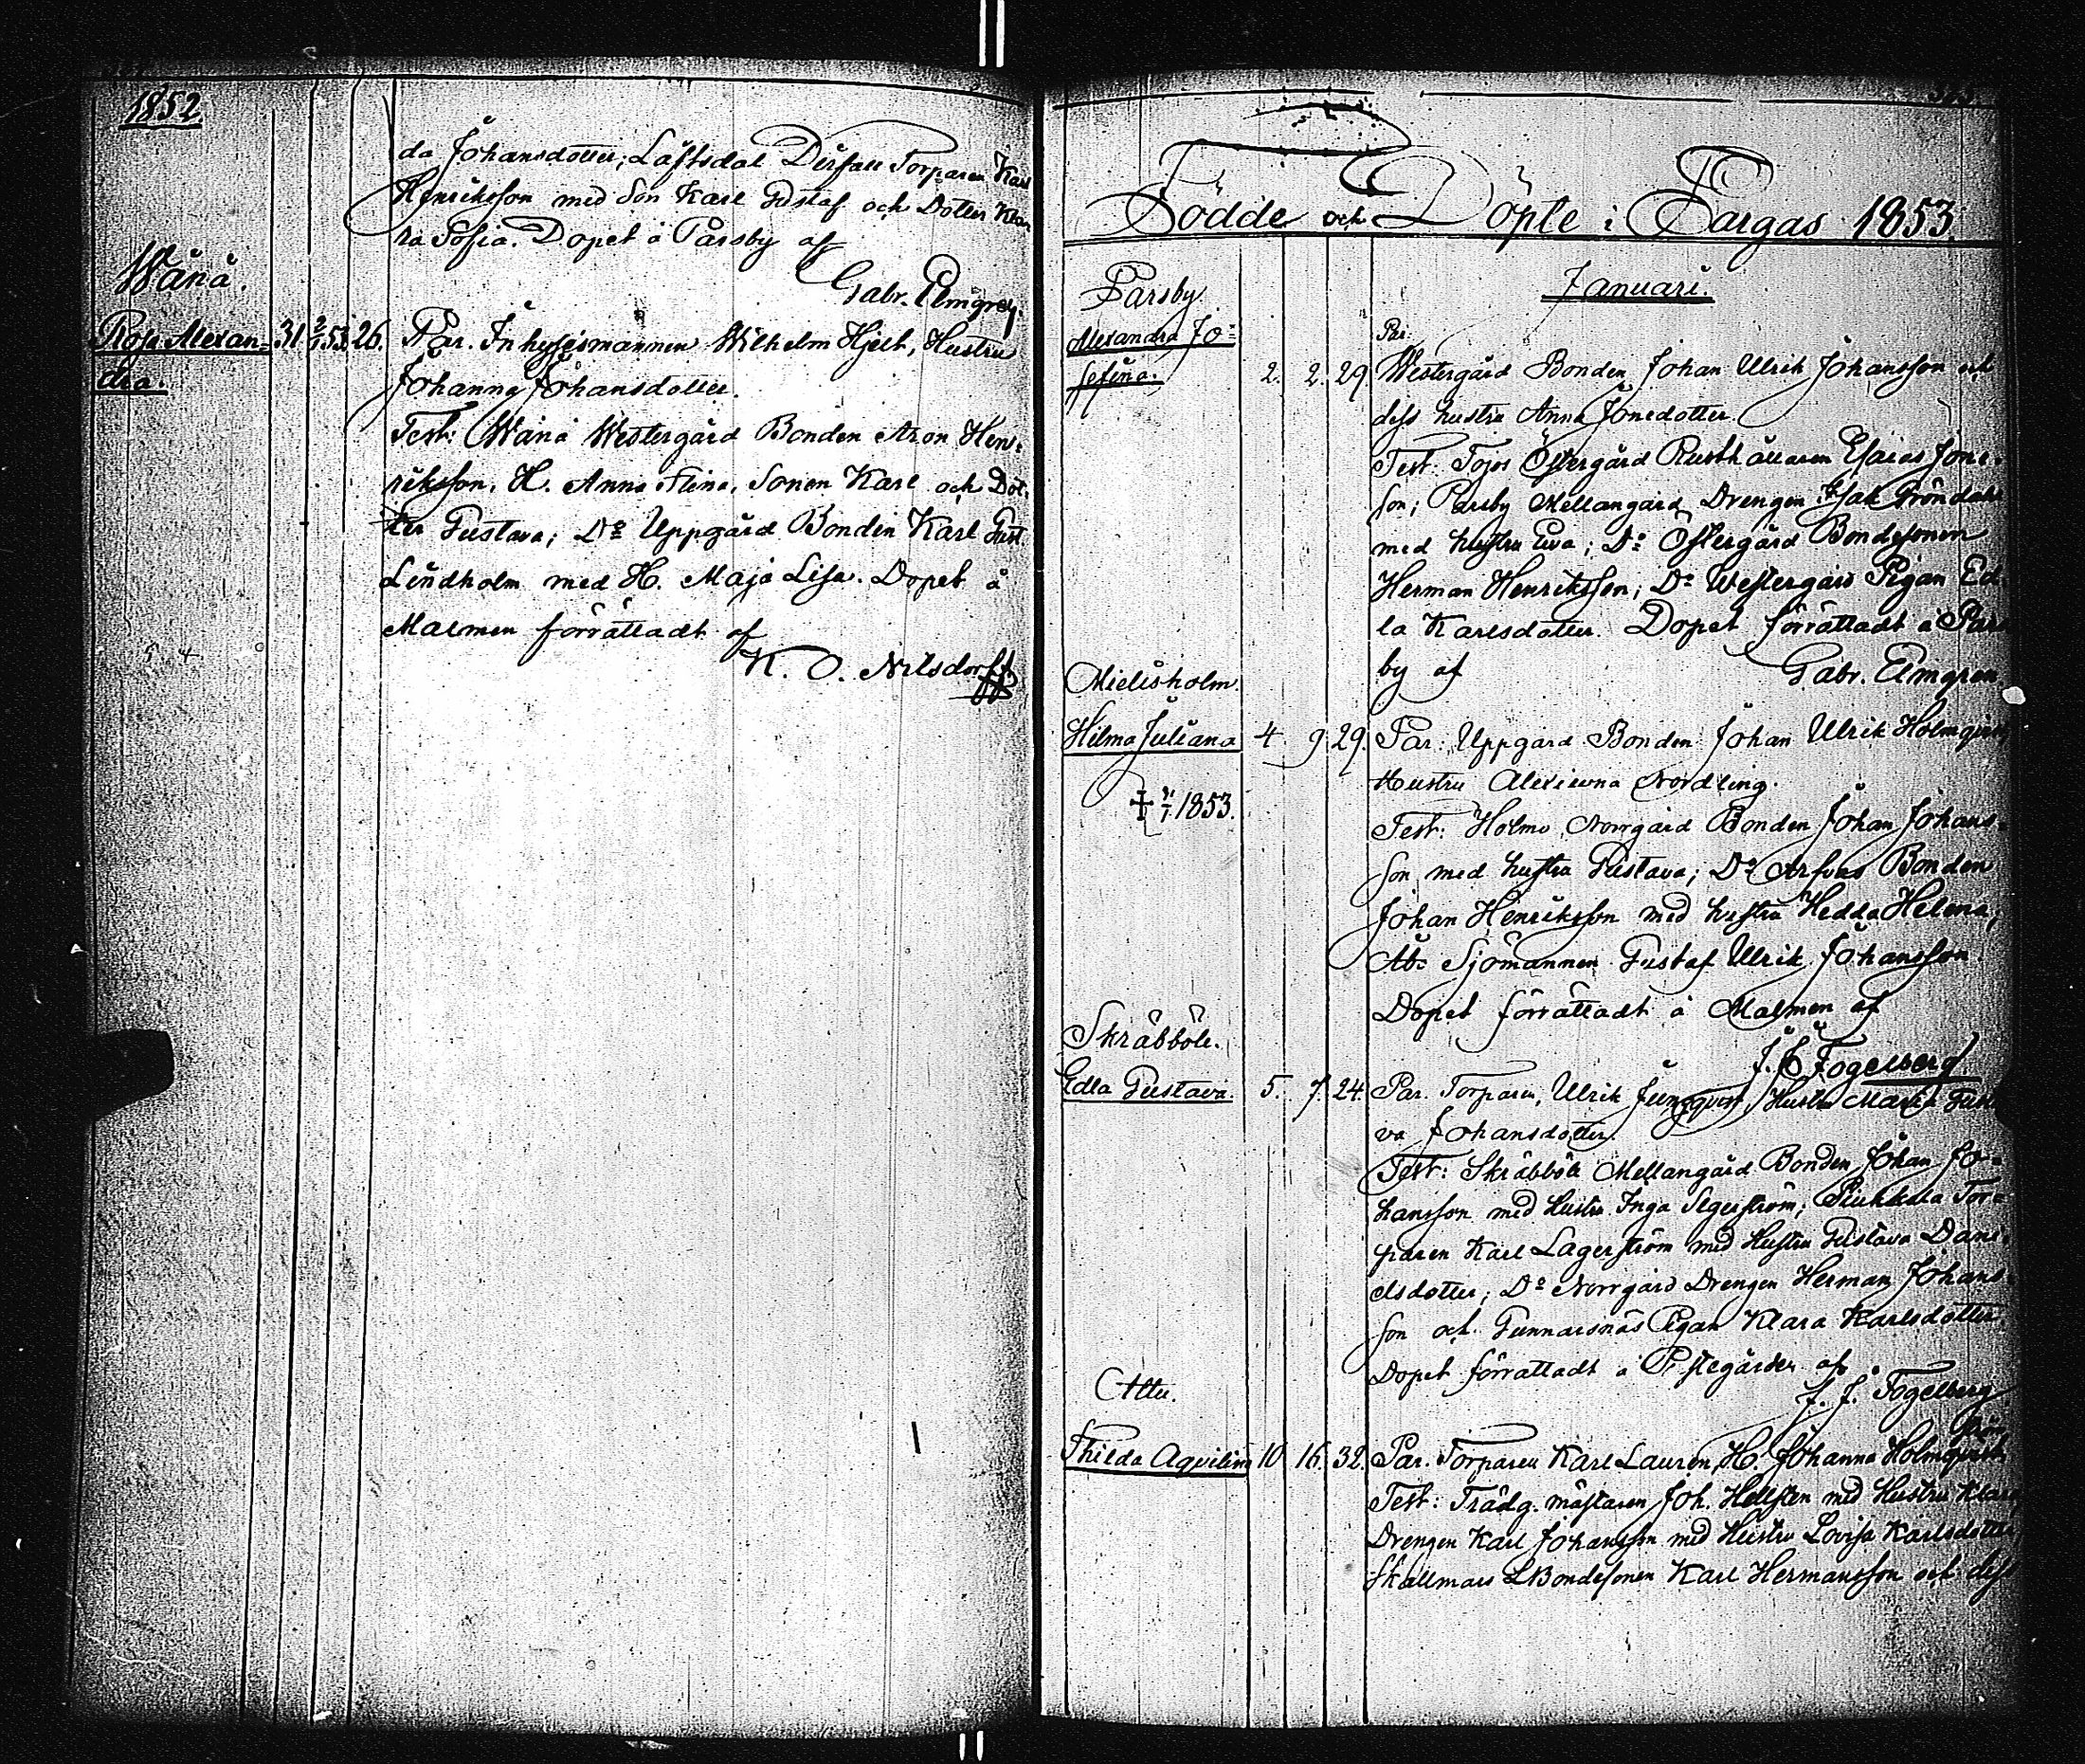 1852.
da Johansdotter; Löftsdal Dersatt Torparen Karl
Henriksson med Son Karl Gustaf och Dotter Kla-
ra Sofia. Dopet å Parsby af
Gabr. Elmgren.
Wånå.
Rosa Alexan- 31 2/1 53. 26. Par. Inhysesmannen Wilhelm Hjelt, Hustru
dra. Johanna Johansdotter.
Test: Wånå Westergård Bonden Aron Hen-
riksson, H. Anna Stina, Sonen Karl och Dot-
ter Gustava; Do Uppgård Bonden Karl Gust.
Lindholm med H. Maja Lisa. Dopet å
Malmen förrättadt af
K. O. Nilsdorff.
Födde och Döpte i Pargas 1853.
Januari.
Parsby
Alexandra Jo-
sefina. 2. 2. 29
Par.
Westergård Bonden Johan Ulrik Johansson och
dess hustru Anna Jonsdotter.
Test: Tojos Östergård Rusthållaren Esaias Jons-
son; Parsby Mellangård Drengen Isak Gröndahl
med hustru Eva; Do Östergård Bondesonen
Herman Henriksson; Do Westergård Pigan Ed-
la Karlsdotter. Dopet förrättadt å Pars-
by af Gabr. Elmgren
Mielisholm.
Hilma Juliana 4. 9 29. Par. Uppgård Bonden Johan Ulrik Holmqvist
Hustru Alexiewna Nordling.
† 1853.
Test: Holmo Norrgård Bonden Johan Johans-
son med hustru Gustava; Do Arfvas Bonden
Johan Henriksson med hustru Hedda Helena,
Åbo Sjömannen Gustaf Ulrik Johansson
Dopet förrättadt å Malmen af
J. J. Fogelberg
Skräbböle.
Edla Gustava. 5. 7. 24. Par. Torparen, Ulrik Ljungqvist, Hustru Maria Gusta-
va Johansdotter.
Test: Skräbböle Mellangård Bonden Johan Jo-
hansson med Hustru Inga Segerström; Tor-
paren Karl Lagerström med Hustru Gustava Dani-
elsdotter; Do Norrgård Drengen Herman Johans-
son och Gunnarsnäs Pigan Klara Karlsdotter.
Dopet förrättadt å Prestegården af
J. J. Fogelberg
Attu.
Thilda Aqvilina 10 16. 32. Par. Torparen Karl Lauren, H. Johanna Holmqvist
Test: Trädg. mästaren Joh. Hellsten med Hustru Klara
Drengen Karl Johansson med Hustru Lovisa Karlsdotter
Skallmars Bondesonen Karl Hermansson och dess